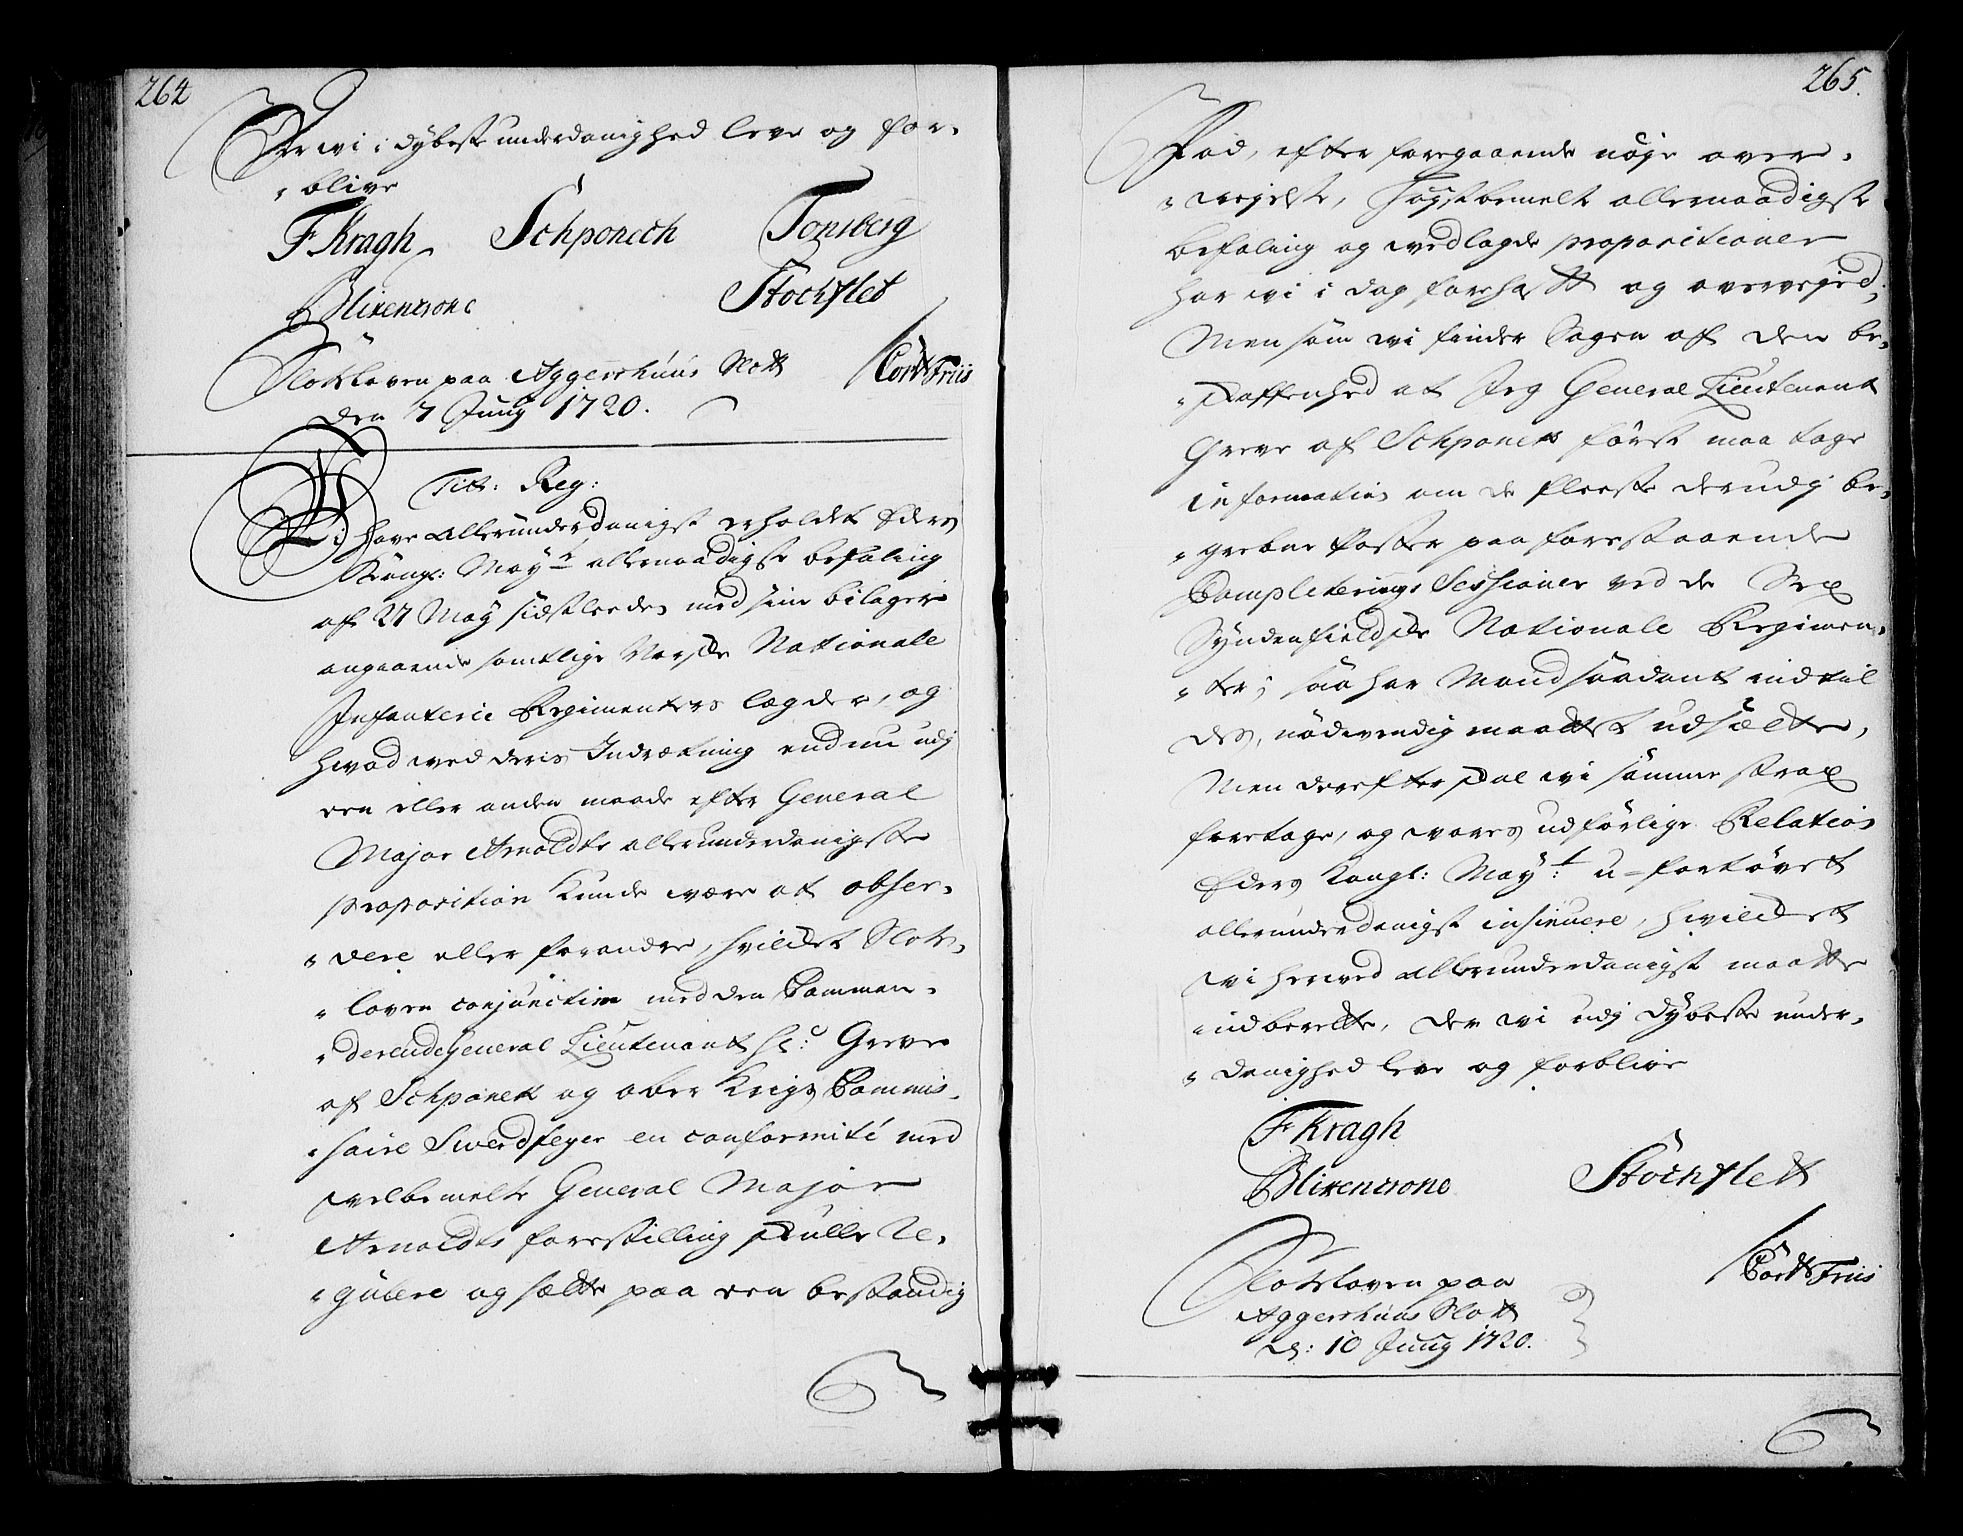 264
Er wi i dybeste underdanighed leve og for-
"blive
F Kragh Schponech Tonsberg
Blixencrone Stochflet
Slotzloven paa Aggershúus Slott Cordt Friis
den 7 Junij 1720.
Titt: Reg:
Wi have allerúnderdanigst erholdet Eders
Kongl: Mayts allernaadigste befaling
af 27 May sidstleeden med sine bilager
angaaende samtlige Norske Nationale
Infanterie Regimenters lægder, og
hvad ved deris Indretning endnu udj
een eller anden maade efter General
Major Arnoldts allerunderdanigste
proposition kunde være at obser-
"vere eller forandre, hvilcket Slotz-
"loven conjunctim med den Comman-
"derende General Lieutenant Hr: Greve
af Schponek og ober Krigs Commis-
"saire Swerdfeger en conformité med
velbemelte General Major
Arnoldts forestilling skulle Re-
"gulere og sætte paa een bestandig
265.
Fod, efter foregaaende nöye over-
"vejelse, Höystbemelte allernaadigste
befaling og vedlagde propositioner
har wi i dag forehatt og overvejed;
Men som wi finder Sagen af den be-
"skaffenhed at Jeg General Lieutenant
Greve af Schponek först maa tage
information om de fleeste derudj be-
"grebne Poster paa forestaaende
Completerings Sessioner ved de Sex
Syndenfieldske Nationale Regimen-
"ter; saa har Mand saadant indtil
des, nödvendig maattet udsætte,
Men derefter skal wi samme strax
foretage, og vores udförlige Relation
Eders Kongl: Mayt: u-fortövet
allerunderdanigst insinuere, hvilcket
wi herved allerunderdanigst maatte
indberette, der wi udj dybeste under-
"danighed leve og forblive
F Kragh
Blixencrone Stochflett
Slotzloven paa Cordt Friis
Aggershuus Slott
d: 10 Junij 1720.